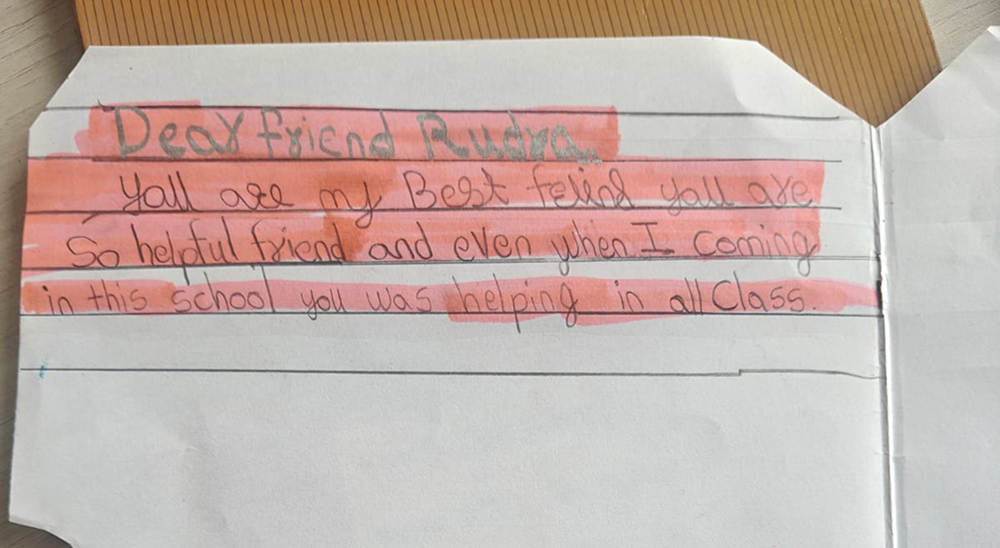 Dear friend Rudra.
Yall are my Best feind yall are
So helpful friend and even when I coming
in this school you was helping in all Class.